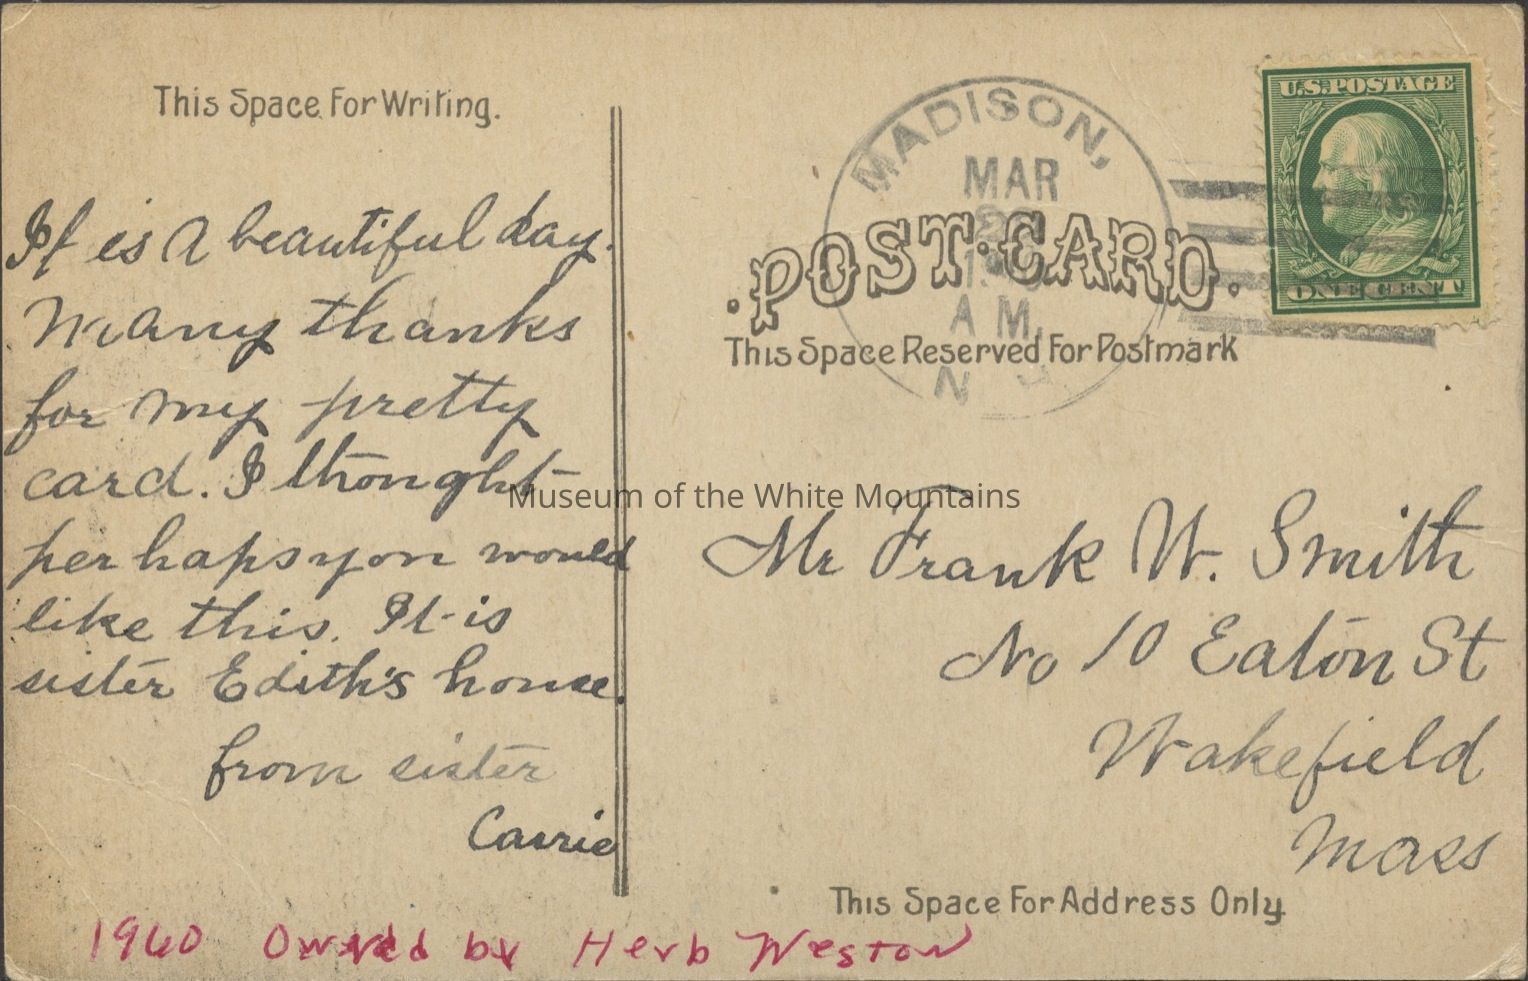 This Space For Writing.
It is a beautiful day.
Many thanks
for my pretty
card. I thought
perhaps you would
like this. It is
sister Edith's house.
from sister
Carrie
1960 Owned by Herb Weston
MADISON,
MAR
A M.
N H
U.S. POSTAGE
ONE CENT
POST CARD.
This Space Reserved For Postmark
Museum of the White Mountains
Mr Frank W. Smith
No 10 Eaton St
Wakefield
Mass
This Space For Address Only